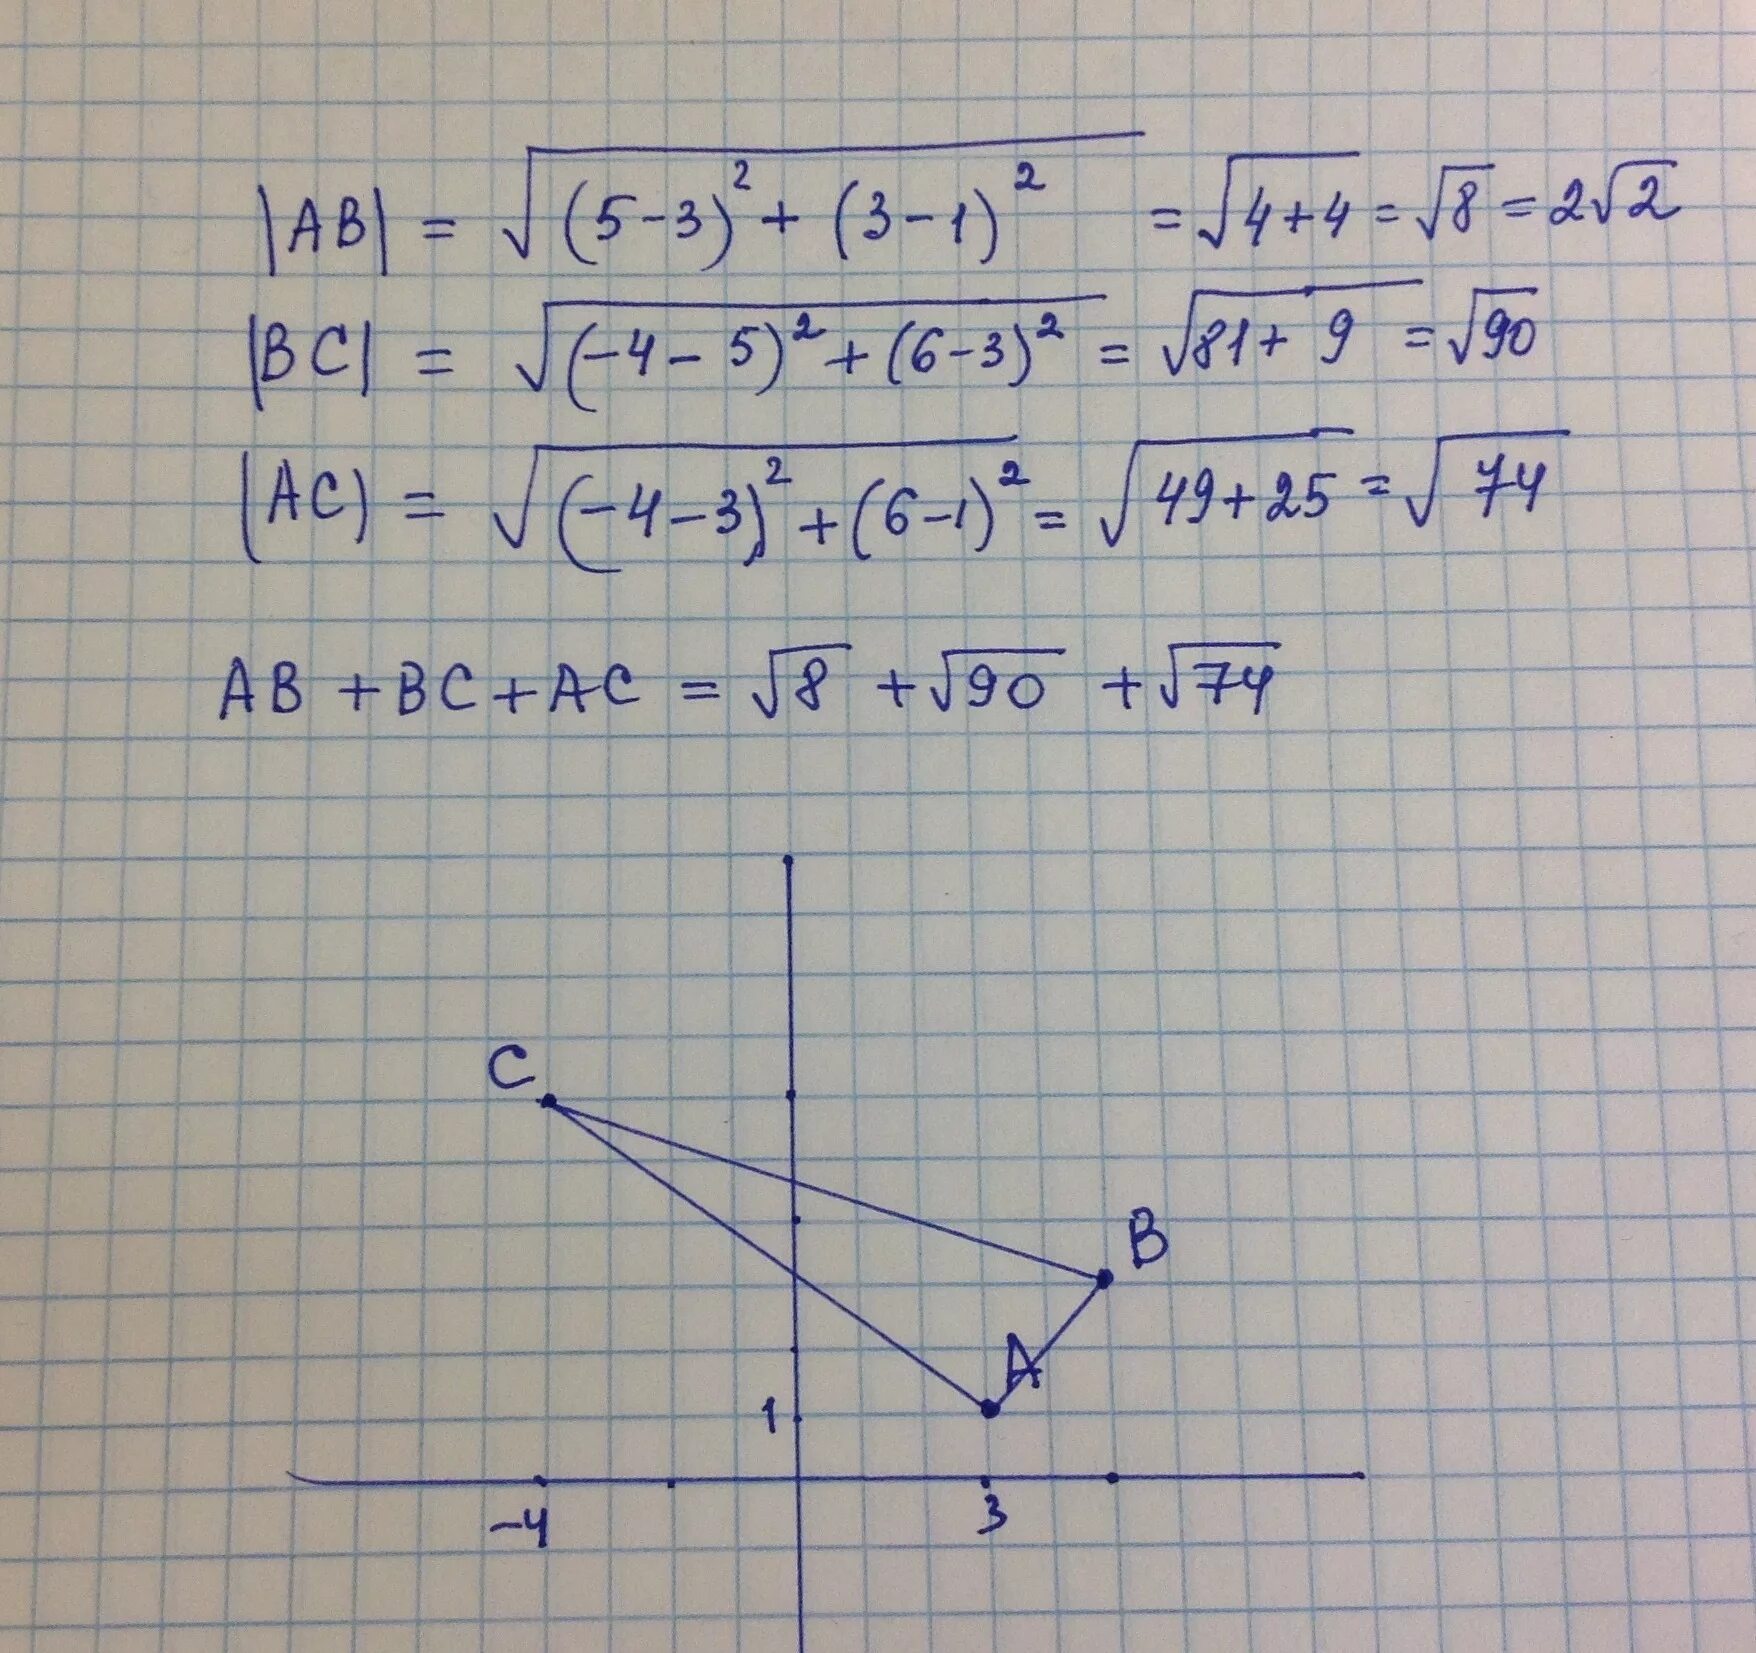 |AB| = √(5-3)² + (3-1)² = √4+4 = √8 = 2√2
|BC| = √(-4-5)² + (6-3)² = √81+9 = √90
|AC) = √(-4-3)² + (6-1)² = √49+25 = √74
AB + BC + AC = √8 + √90 + √74
C
B
A
1
-4 3